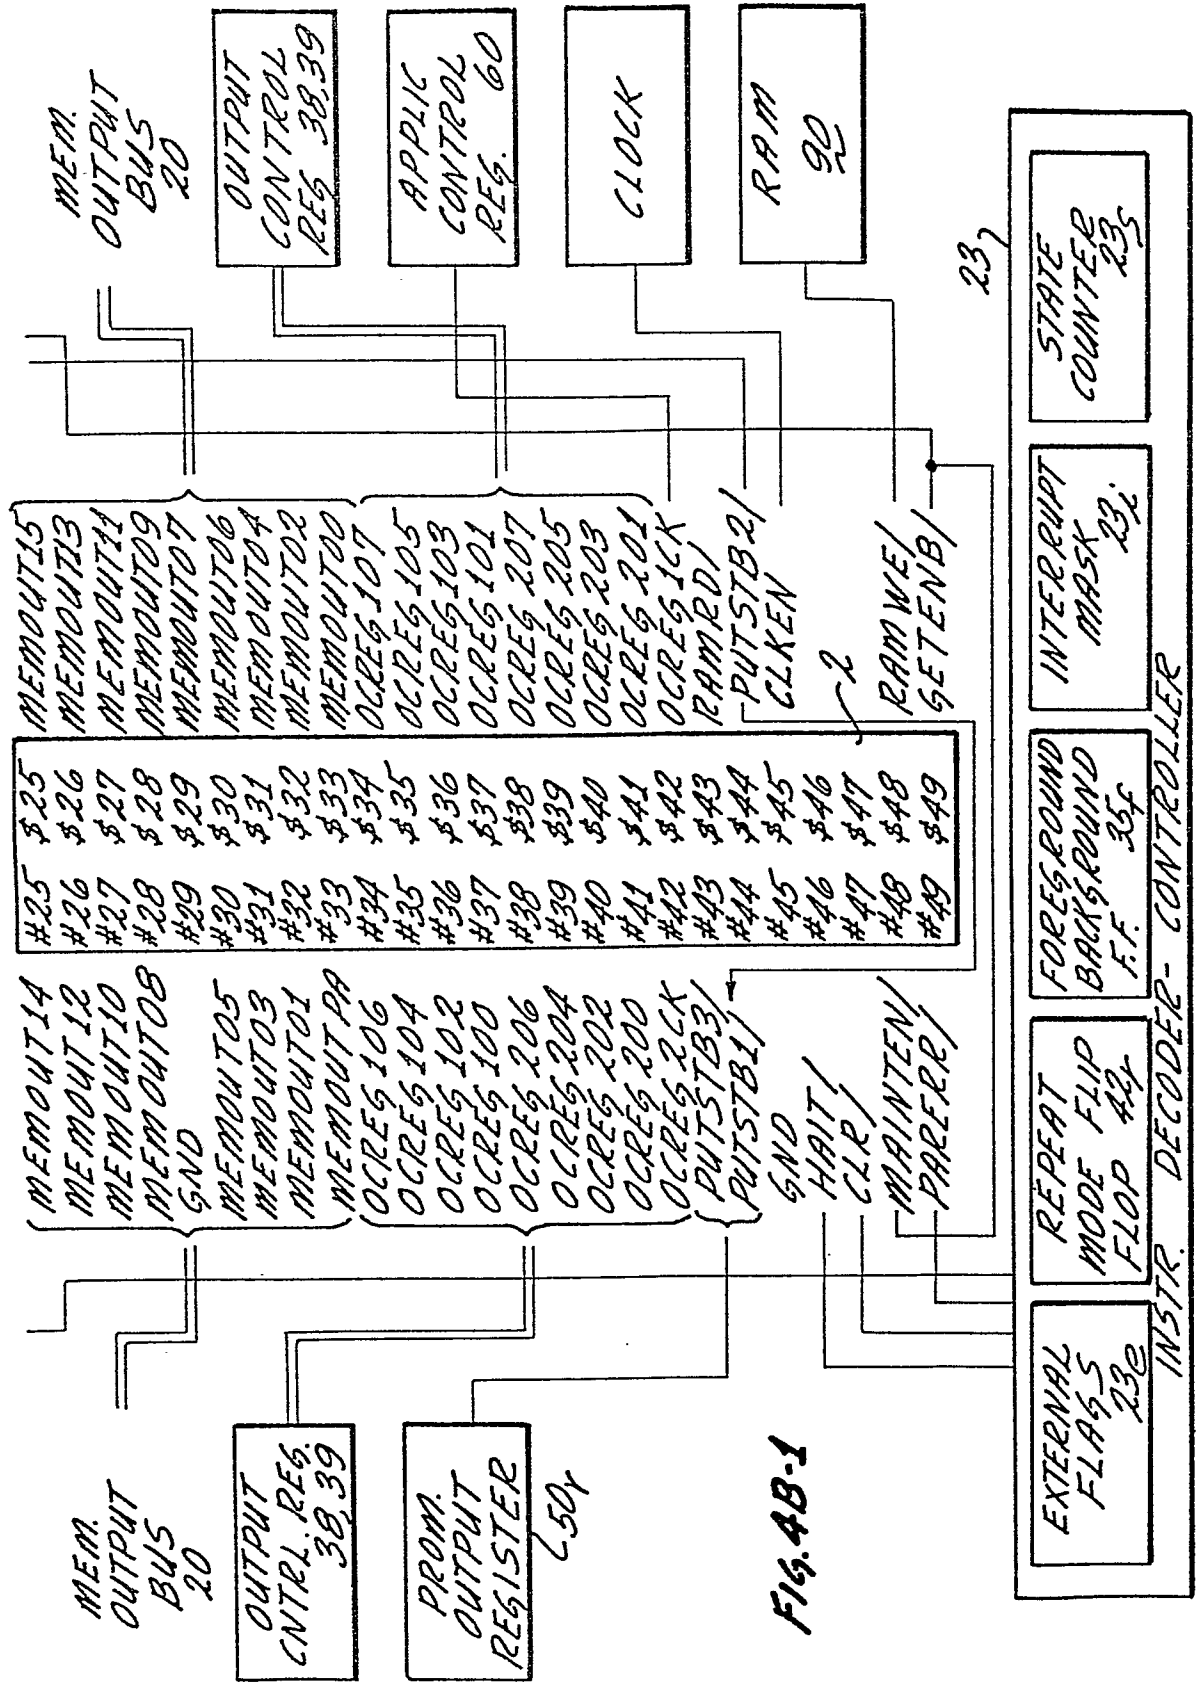 MEM.
OUTPUT
BUS
20
OUTPUT
CNTRL. REG.
38,39
PROM.
OUTPUT
REGISTER
50r
FIG. 4B-1
MEMOUT14
MEMOUT12
MEMOUT10
MEMOUT08
GND
MEMOUT05
MEMOUT03
MEMOUT01
MEMOUT PA
OCREG 106
OCREG 104
OCREG 102
OCREG 100
OCREG 206
OCREG 204
OCREG 202
OCREG 200
OCREG 2CK
PUTSTB3/
PUTSTB1/
GND
HAIT/
CLR/
MAINTEN/
PARERR/
#25 $25
#26 $26
#27 $27
#28 $28
#29 $29
#30 $30
#31 $31
#32 $32
#33 $33
#34 $34
#35 $35
#36 $36
#37 $37
#38 $38
#39 $39
#40 $40
#41 $41
#42 $42
#43 $43
#44 $44
#45 $45
#46 $46
#47 $47
#48 $48
#49 $49
2
MEMOUT15
MEMOUT13
MEMOUT11
MEMOUT09
MEMOUT07
MEMOUT06
MEMOUT04
MEMOUT02
MEMOUT00
OCREG 107
OCREG 105
OCREG 103
OCREG 101
OCREG 207
OCREG 205
OCREG 203
OCREG 201
OCREG 1CK
RAMRD/
PUTSTB2/
CLKEN
RAMWE/
GETENB/
MEM.
OUTPUT
BUS
20
OUTPUT
CONTROL
REG 38,39
APPLIC
CONTROL
REG. 60
CLOCK
RAM
90
23
EXTERNAL
FLAGS
23e
REPEAT
MODE FLIP
FLOP 42r
FOREGROUND
BACKGROUND
F.F. 35f
INTERRUPT
MASK
23i
STATE
COUNTER
23s
INSTR. DECODER- CONTROLLER